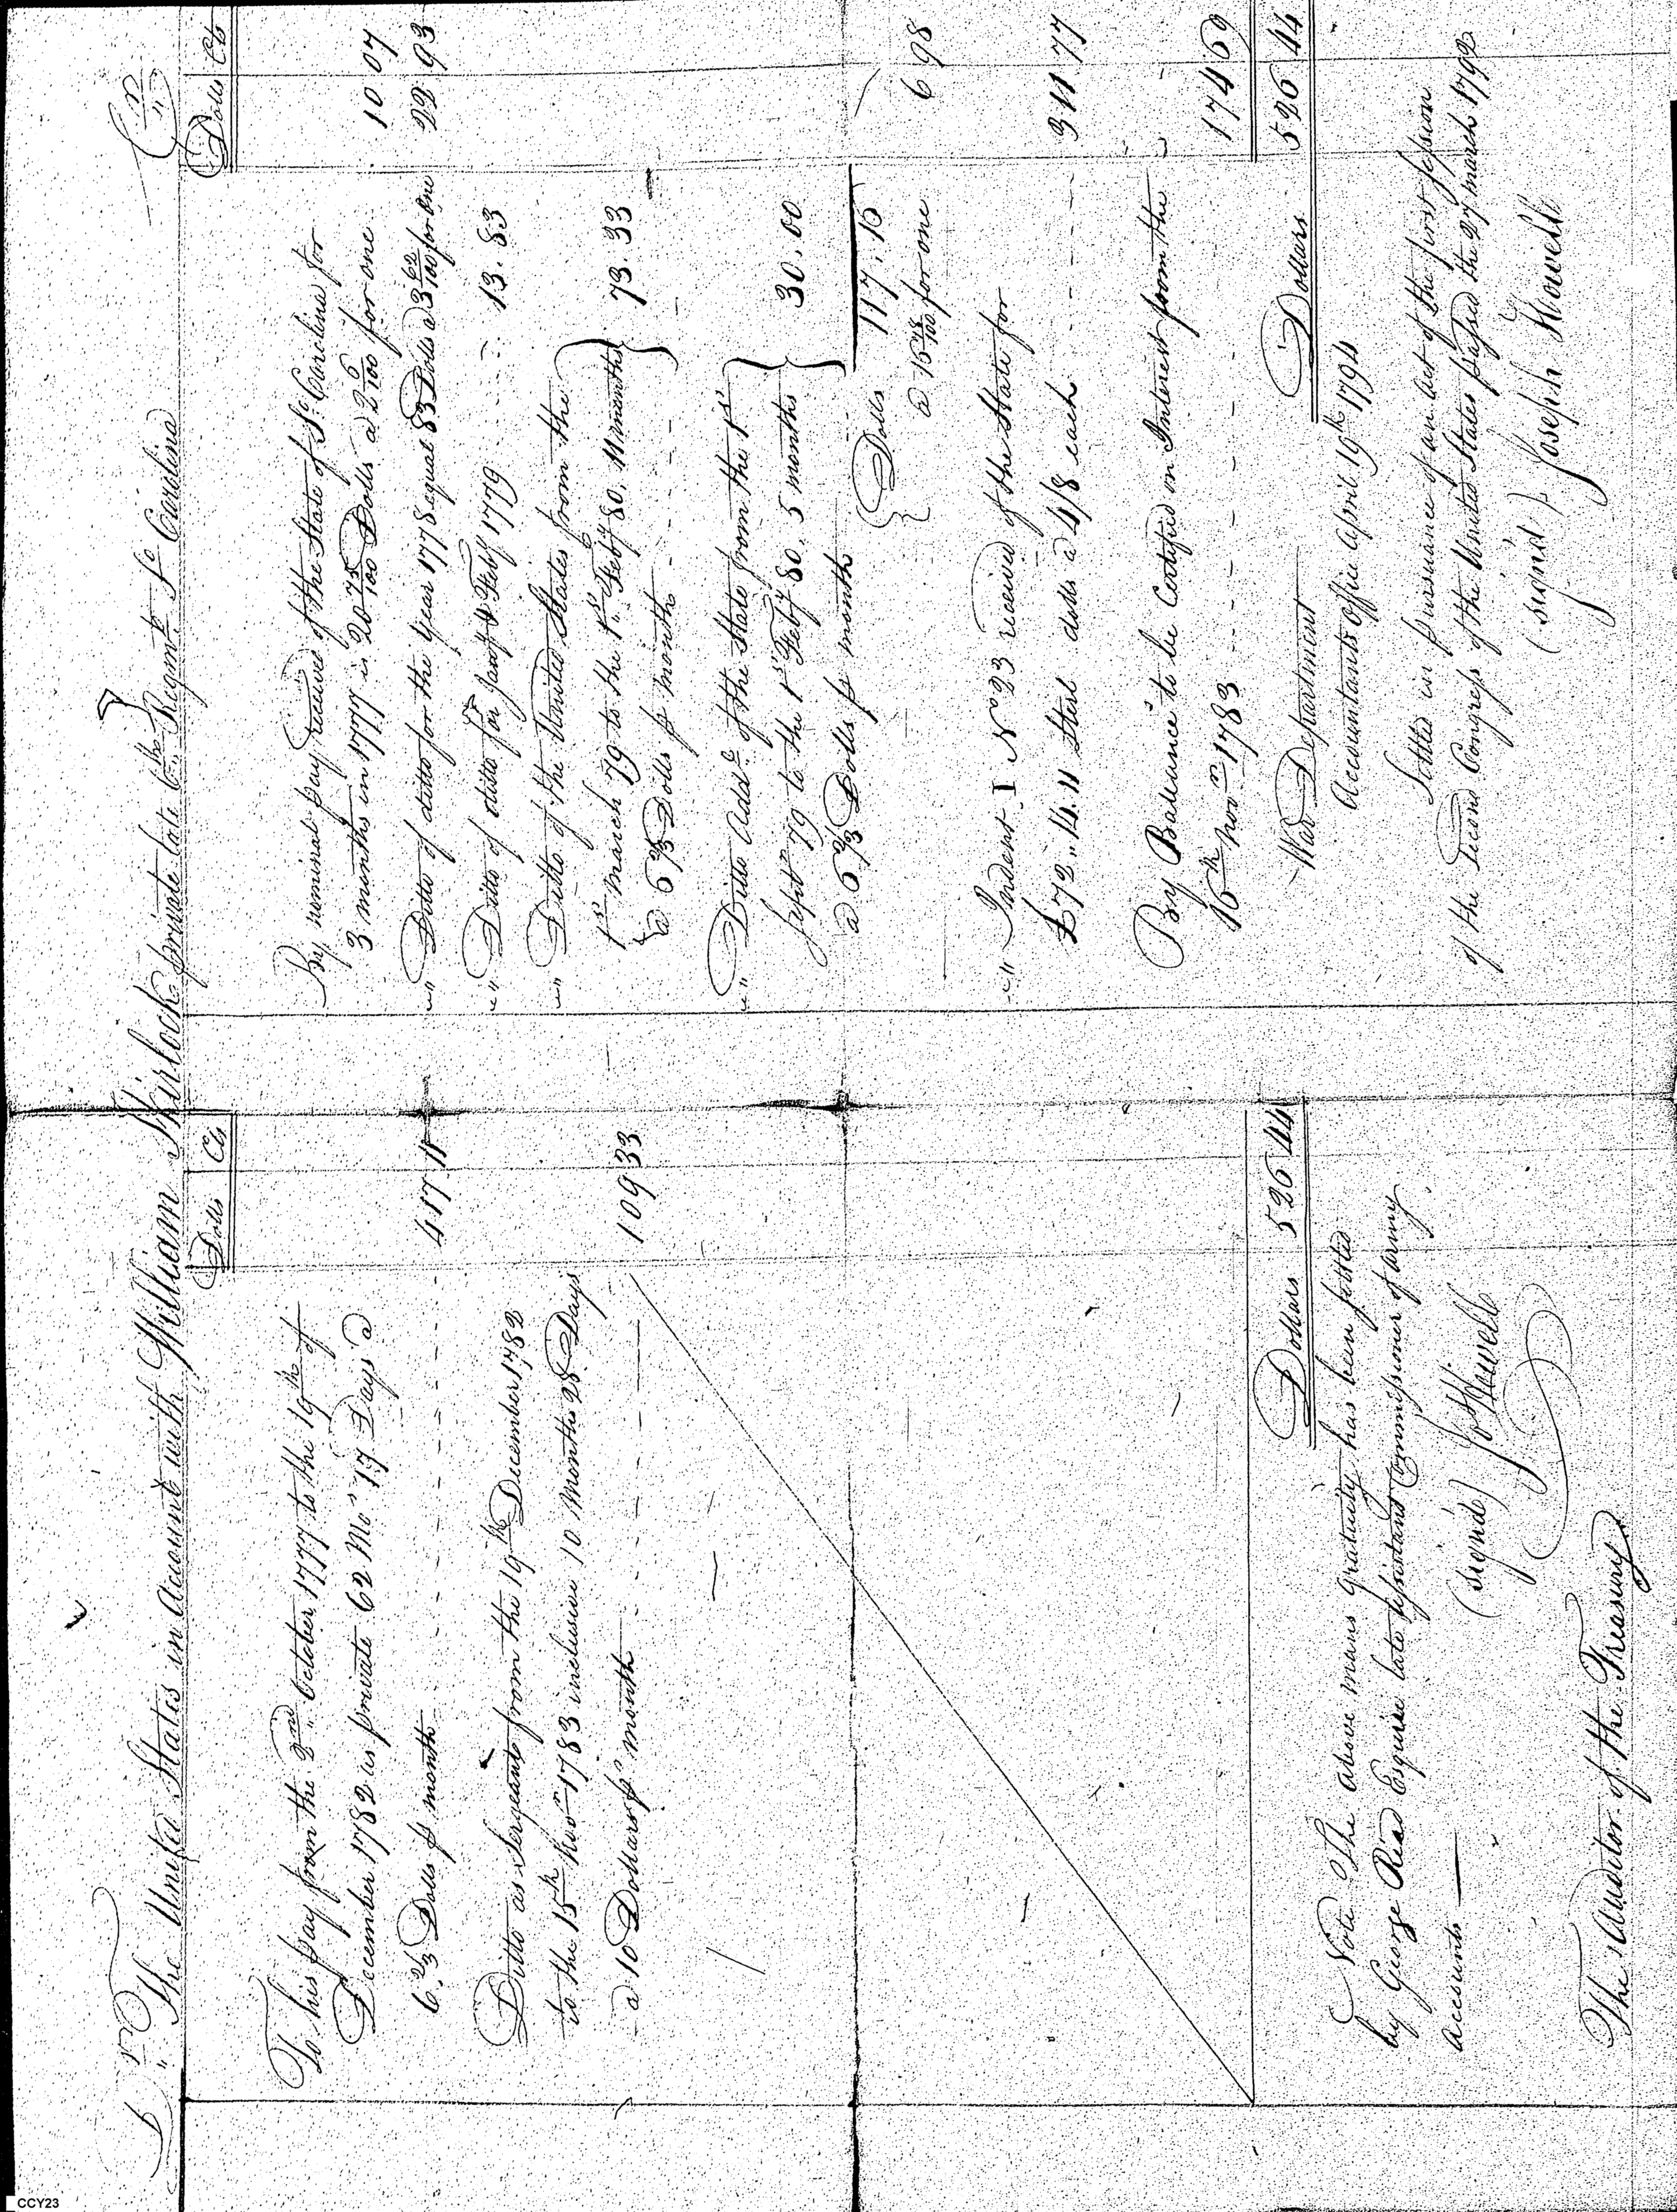 Dr. The United States in Account with William Kirlock private late 6th Regmt. So. Carolina Cr.
Dolls Cts
To his pay from the 2nd October 1777 to the 19th of
December 1782 as private 62 Mos. 17 Days a
6 2/3 Dolls pr month - - - - 417 11
Ditto as Sergeant from the 19th December 1782
to the 15th Novr 1783 inclusive 10 Months 28 Days
a 10 Dollars pr month - - - - 109 33
Dollars 526 44
Note The above mans gratuity has been settled
by George Read Esquire late assistant Commissioner of army
accounts
(signd) Jos Howell
The Auditor of the Treasury
Dolls Cts
By nominal pay received of the State of So. Carolina for
3 months in 1777 is 20 75/100 Dolls a 2 6/100 for one 10 07
" Ditto of ditto for the year 1778 equal 83 Dolls a 3 62/100 for one 22 93
" Ditto of ditto for Jany & Feby 1779 - - - 13.83
" Ditto of the United States from the
1st March 79 to the 1st Feby 80, 11 months
a 6 2/3 Dolls pr month - - - 73.33
" Ditto Addl. of the State from the 1st
Septr 79 to the 1st Feby 80. 5 months
a 6 2/3 Dolls pr month 30.00
Dolls 117.16
a 15 48/100 for one 6 98
" Indent I No 23 received of the State for
£72.,14.11 Sterl dolls a 4/8 each - - - 311 77
By Balance to be Certified on Interest from the
16th Novr 1783 - - - - 174 69
Dollars 526 44
War Department
Accountants office April 19th 1794
Settled in pursuance of an act of the first session
of the Second Congress of the United States passed the 27 march 1792
(signd) Joseph Howell
CCY23